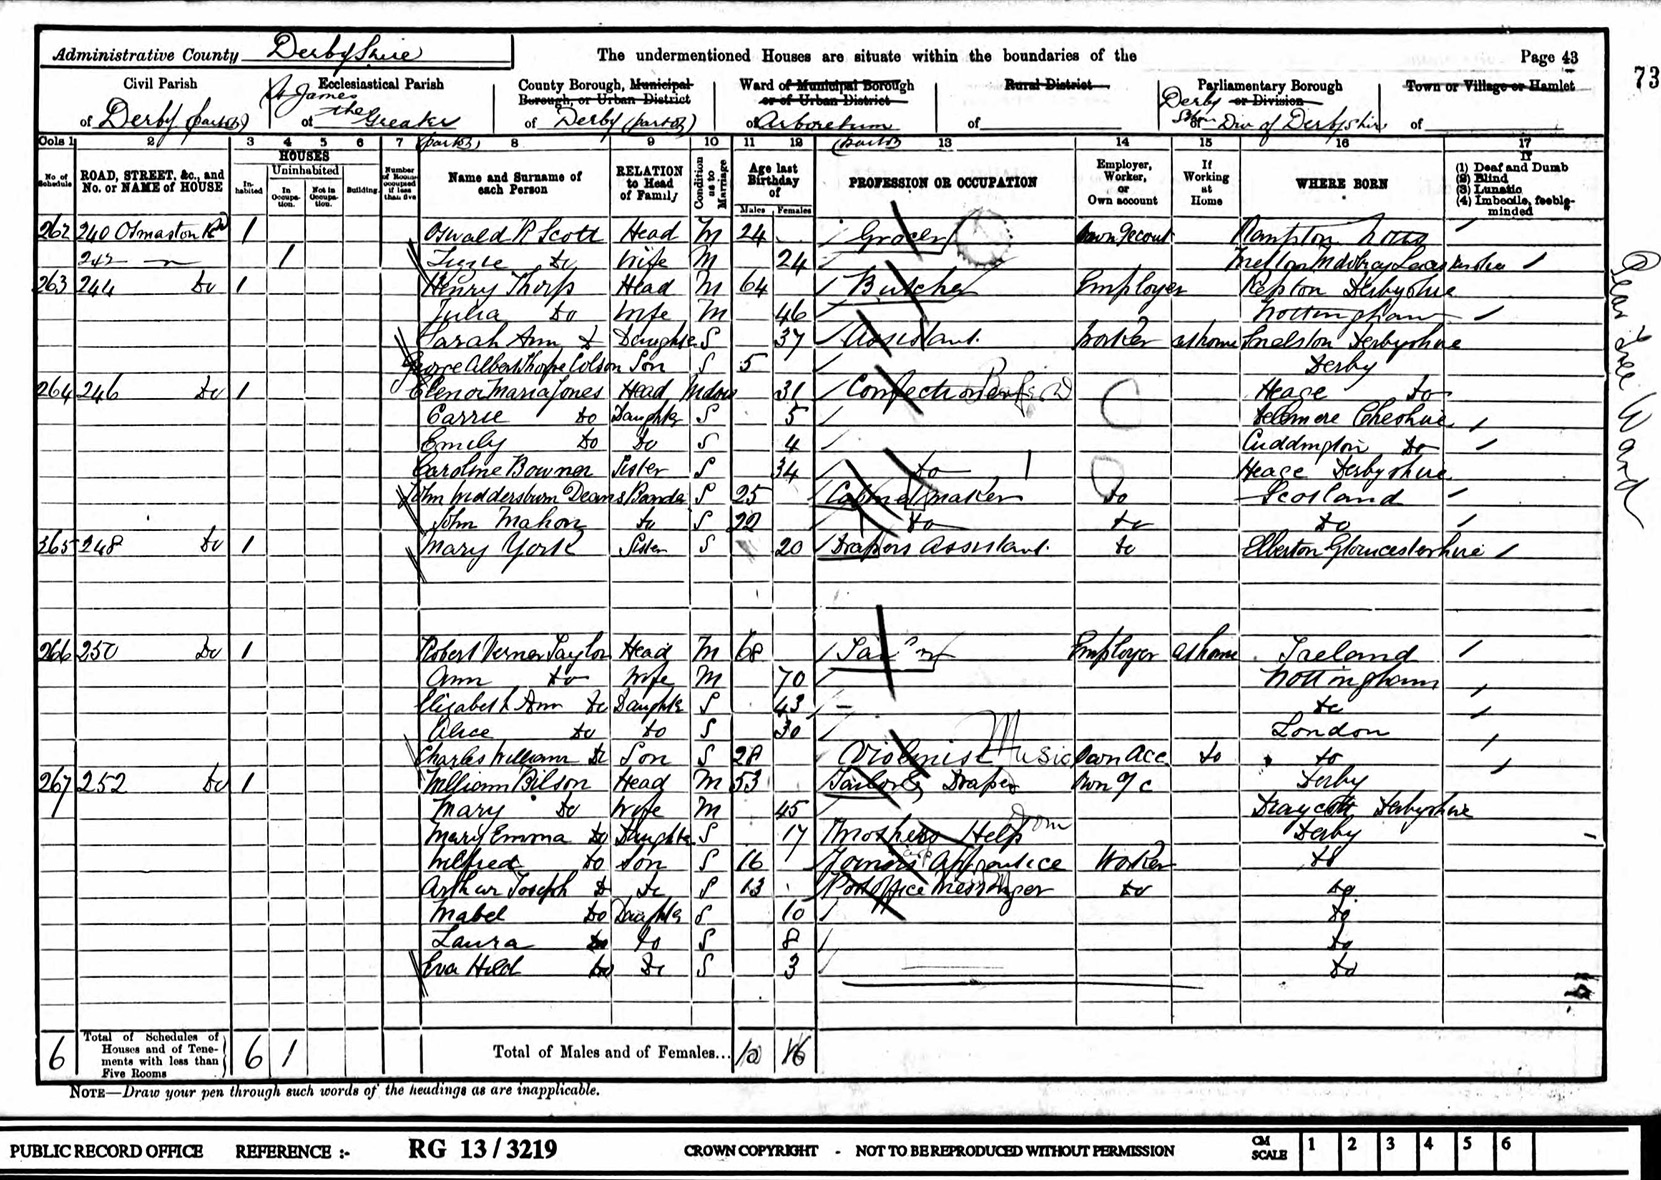 Administrative County Derbyshire
The undermentioned Houses are situate within the boundaries of the
Page 43
73
Civil Parish
of Derby (part of)
Ecclesiastical Parish
of St James the Greater (part of)
County Borough, Municipal Borough, or Urban District
of Derby (part of)
Ward of Municipal Borough or of Urban District
of Arboretum (part of)
Rural District
of
Parliamentary Borough or Division
of Derby Div of Derbyshire
Town or Village or Hamlet
of
Cols 1 2 3 4 5 6 7 8 9 10 11 12 13 14 15 16 17
No. of Schedule
ROAD, STREET, &c., and No. or NAME of HOUSE
HOUSES
Inhabited
Uninhabited
In Occupation.
Not in Occupation.
Building.
Number of Rooms occupied if less than five
Name and Surname of each Person
RELATION to Head of Family
Condition as to Marriage
Age last Birthday of
Males Females
PROFESSION OR OCCUPATION
Employer, Worker, or Own account
If Working at Home
WHERE BORN
If
(1) Deaf and Dumb
(2) Blind
(3) Lunatic
(4) Imbecile, feeble-minded
262 240 Osmaston Rd 1 Oswald R Scott Head M 24 Grocer Own Account Rampton Notts
242 1 Lizzie Do Wife M 24 Melton Mowbray
263 244 Do 1 Henry Thorp Head M 64 Butcher Employer Repton Derbyshire
Julia Do Wife M 46 Nottingham
Sarah Ann Do Daughter S 37 Assistant Worker at home Snelston Derbyshire
George Albert Thorpe Colson Son S 5 Derby
264 246 Do 1 Elenor Maria Jones Head Widow 31 Confectioner Heage Do
Carrie Do Daughter S 5 Delamere Cheshire
Emily Do Do S 4 Cuddington Do
Caroline Bowner Sister S 34 Do Heage Derbyshire
John Deans S 25 Cabinet maker Do Scotland
John Mahon Do S 22 Do Do Do
265 248 Do 1 Mary York Sister S 20 Drapers Assistant Do Elberton Gloucestershire
266 250 Do 1 Robert Verner Taylor Head M 68 Employer at home Ireland
Ann Do Wife M 70 Nottingham
Elizabeth Ann Do Daughter S 43 – Do
Alice Do Do S 30 London
Charles William Do Son S 28 Violinist Music Own Acc Do Do
267 252 Do 1 William Bilson Head M 53 Tailor & Draper Own a/c Derby
Mary Do Wife M 45 Draycott Derbyshire
Mary Emma Do Daughter S 17 Mothers Help Dom Derby
Wilfred Do Son S 16 Joiners Apprentice Worker Do
Arthur Joseph Do Do S 13 Post Office Messenger Do Do
Mabel Do Daughter S 10 Do
Laura Do Do S 8 Do
Eva Hild Do Do S 3 Do
Pear Tree Ward
6 Total of Schedules of Houses and of Tenements with less than Five Rooms 6 1 Total of Males and of Females... 10 16
NOTE—Draw your pen through such words of the headings as are inapplicable.
PUBLIC RECORD OFFICE REFERENCE :- RG 13 / 3219 CROWN COPYRIGHT - NOT TO BE REPRODUCED WITHOUT PERMISSION CM SCALE 1 2 3 4 5 6